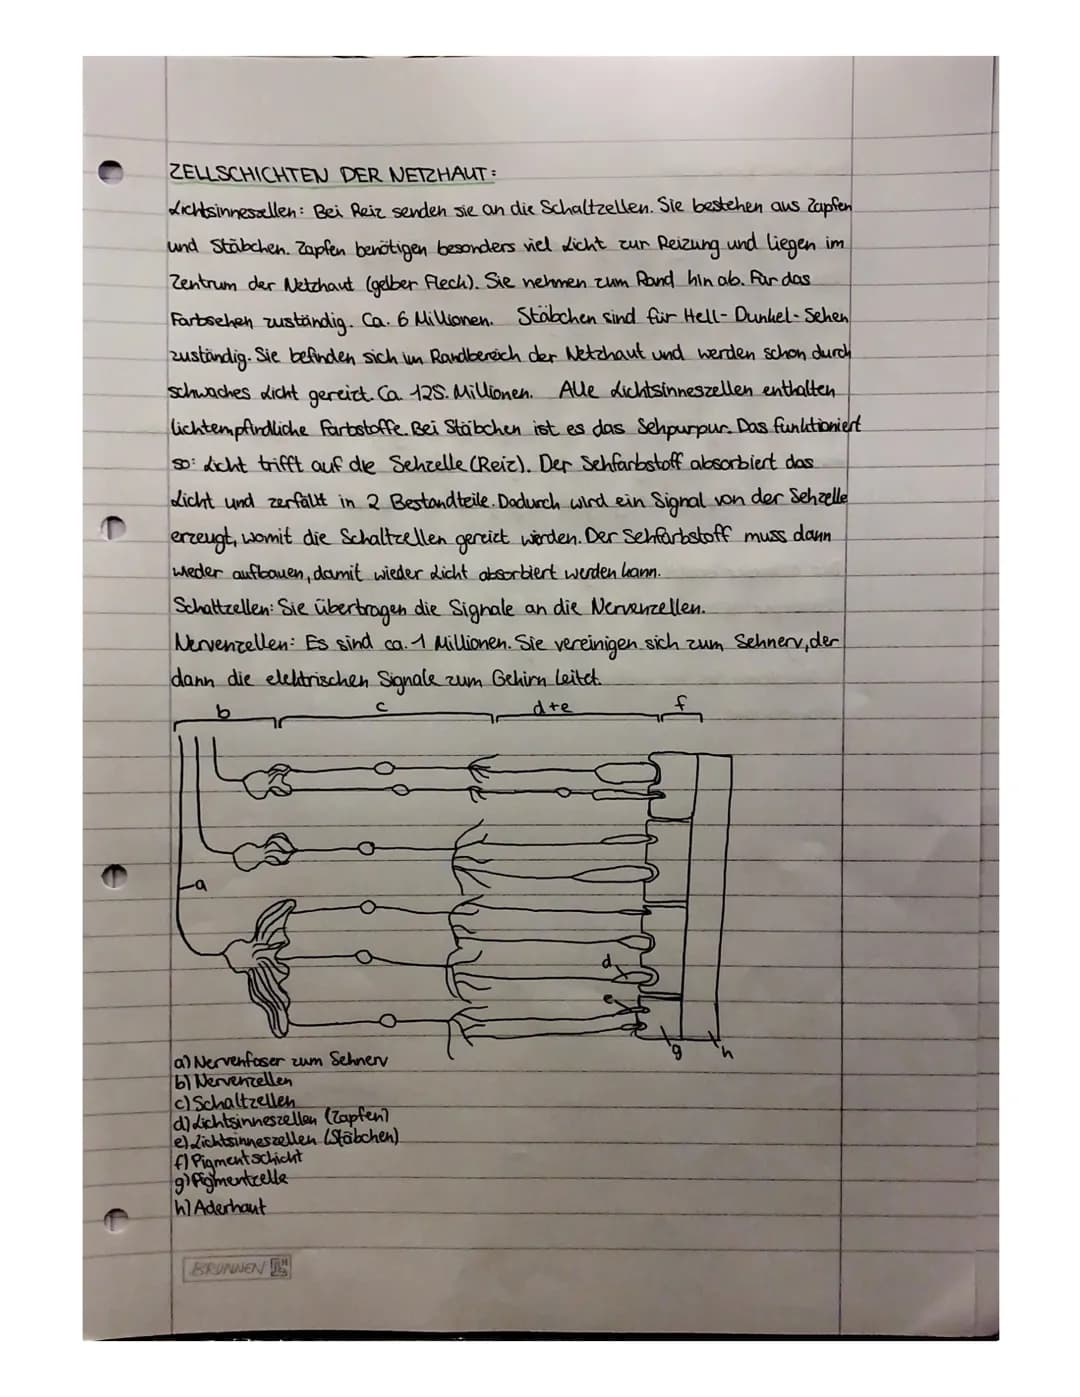 ZELLSCHICHTEN DER NETZHAUT:
Lichtsinneszellen: Bei Reiz senden sie an die Schaltzellen. Sie bestehen aus Zapfen
und Stäbchen. Zapfen benötigen besonders viel Licht zur Reizung und liegen im
Zentrum der Netzhaut (gelber Fleck). Sie nehmen zum Rand hin ab. Für das
Farbsehen zuständig. Ca. 6 Millionen. Stäbchen sind für Hell-Dunkel-Sehen
zuständig. Sie befinden sich im Randbereich der Netzhaut und werden schon durch
schwaches Licht gereizt. Ca. 125. Millionen. Alle Lichtsinneszellen enthalten
lichtempfindliche Farbstoffe. Bei Stäbchen ist es das Sehpurpur. Das funktioniert
so: Licht trifft auf die Sehzelle (Reiz). Der Sehfarbstoff absorbiert das
Licht und zerfällt in 2 Bestandteile. Dadurch wird ein Signal von der Sehzelle
erzeugt, womit die Schaltzellen gereizt werden. Der Sehfarbstoff muss dann
wieder aufbauen, damit wieder Licht absorbiert werden kann.
Schaltzellen: Sie übertragen die Signale an die Nervenzellen.
Nervenzellen: Es sind ca. 1 Millionen. Sie vereinigen sich zum Sehnerv, der
dann die elektrischen Signale zum Gehirn leitet.
b c d+e f
a
d
e
g h
a) Nervenfaser zum Sehnerv
b) Nervenzellen
c) Schaltzellen
d) Lichtsinneszellen (Zapfen)
e) Lichtsinneszellen (Stäbchen)
f) Pigmentschicht
g) Pigmentzelle
h) Aderhaut
BRUNNEN